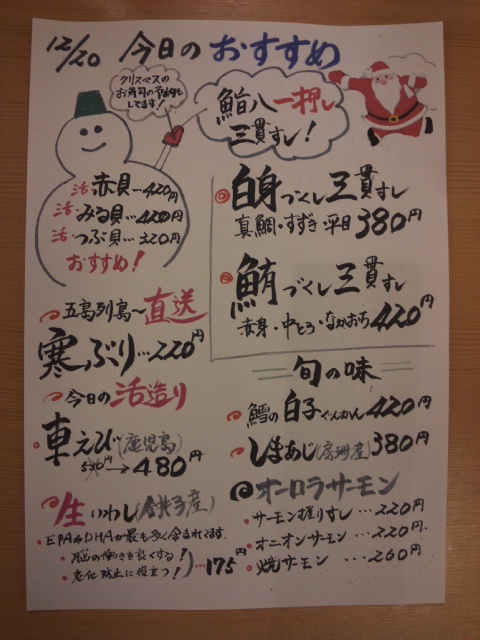 12/20 今日のおすすめ
クリスマスの
お寿司の予約も
してます!
鮨八一押し
三貫すし!
活 赤貝…420円
活 みる貝…420円
活 つぶ貝…320円
おすすめ!
白身づくし三貫すし
真鯛・すずき・平目380円
鮪づくし三貫すし
赤身・中とろ・なかおち420円
五島列島〜直送
寒ぶり…220円
今日の活造り
車えび(鹿児島)
530円→480円
生いわし(銚子産)
EPAやDHAが最も多く含まれてます
・脳の働きを良くする!
・老化防止に役立つ!)…175円
旬の味
鱈の白子ぐんかん420円
しまあじ(房州産)380円
オーロラサーモン
・サーモン握りすし…220円
・オニオンサーモン…220円
・焼サーモン…260円